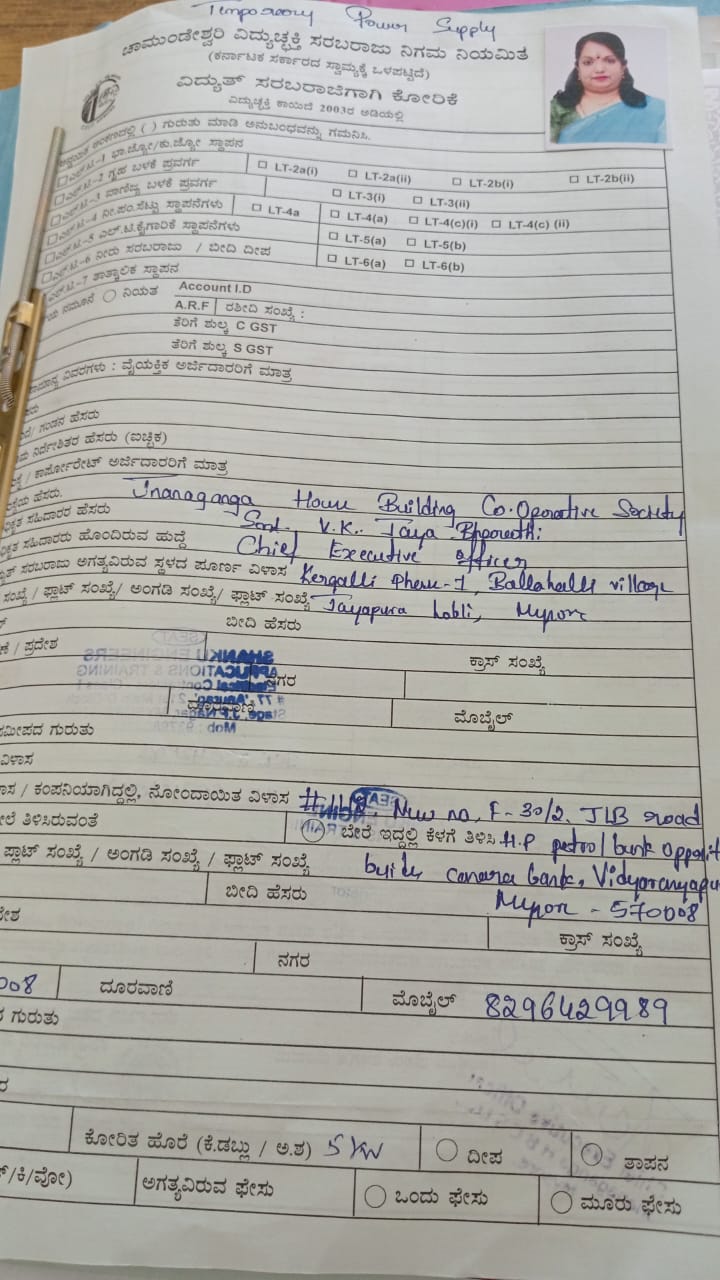 Temporary Power Supply
ಚಾಮುಂಡೇಶ್ವರಿ ವಿದ್ಯುಚ್ಛಕ್ತಿ ಸರಬರಾಜು ನಿಗಮ ನಿಯಮಿತ
(ಕರ್ನಾಟಕ ಸರ್ಕಾರದ ಸ್ವಾಮ್ಯಕ್ಕೆ ಒಳಪಟ್ಟಿದೆ)
ವಿದ್ಯುತ್ ಸರಬರಾಜಿಗಾಗಿ ಕೋರಿಕೆ
ವಿದ್ಯುಚ್ಛಕ್ತಿ ಕಾಯಿದೆ 2003ರ ಅಡಿಯಲ್ಲಿ
( ) ಗುರುತು ಮಾಡಿ ಅನುಬಂಧವನ್ನು ಗಮನಿಸಿ.
☐ ಎಲ್.ಟಿ-1 ಭಾ.ಜ್ಯೋ/ಕು.ಜ್ಯೋ ಸ್ಥಾಪನ
☐ ಎಲ್.ಟಿ-2 ಗೃಹ ಬಳಕೆ ಪ್ರವರ್ಗ ☐ LT-2a(i) ☐ LT-2a(ii) ☐ LT-2b(i) ☐ LT-2b(ii)
☐ ಎಲ್.ಟಿ-3 ವಾಣಿಜ್ಯ ಬಳಕೆ ಪ್ರವರ್ಗ ☐ LT-3(i) ☐ LT-3(ii)
☐ ಎಲ್.ಟಿ-4 ನೀ.ಪಂ.ಸೆಟ್ಟು ಸ್ಥಾಪನೆಗಳು ☐ LT-4a ☐ LT-4(a) ☐ LT-4(c)(i) ☐ LT-4(c) (ii)
☐ ಎಲ್.ಟಿ-5 ಎಲ್.ಟಿ.ಕೈಗಾರಿಕೆ ಸ್ಥಾಪನೆಗಳು ☐ LT-5(a) ☐ LT-5(b)
☐ ಎಲ್.ಟಿ-6 ನೀರು ಸರಬರಾಜು / ಬೀದಿ ದೀಪ ☐ LT-6(a) ☐ LT-6(b)
ಎಲ್.ಟಿ-7 ತಾತ್ಕಾಲಿಕ ಸ್ಥಾಪನ
ನಮೂನೆ ನಿಯತ Account I.D
A.R.F ರಶೀದಿ ಸಂಖ್ಯೆ :
ತೆರಿಗೆ ಶುಲ್ಕ C GST
ತೆರಿಗೆ ಶುಲ್ಕ S GST
ವಿವರಗಳು : ವೈಯಕ್ತಿಕ ಅರ್ಜಿದಾರರಿಗೆ ಮಾತ್ರ
ಗಂಡನ ಹೆಸರು
ನಿರ್ದೇಶಿತರ ಹೆಸರು (ಐಚ್ಛಿಕ)
/ ಕಾರ್ಪೋರೇಟ್ ಅರ್ಜಿದಾರರಿಗೆ ಮಾತ್ರ
ಹೆಸರು. Jnanaganga House Building Co.Operative Society
ಸಹಿದಾರರ ಹೆಸರು Smt. V.K. Jaya Bharathi
ಸಹಿದಾರರು ಹೊಂದಿರುವ ಹುದ್ದೆ Chief Executive officer
ಸರಬರಾಜು ಅಗತ್ಯವಿರುವ ಸ್ಥಳದ ಪೂರ್ಣ ವಿಳಾಸ Kergalli Phase-1, Ballahalli village
ಸಂಖ್ಯೆ / ಫ್ಲಾಟ್ ಸಂಖ್ಯೆ/ ಅಂಗಡಿ ಸಂಖ್ಯೆ/ ಫ್ಲಾಟ್ ಸಂಖ್ಯೆ Jayapura hobli, Mysore
ಬೀದಿ ಹೆಸರು
/ ಪ್ರದೇಶ ಕ್ರಾಸ್ ಸಂಖ್ಯೆ
ನಗರ
ಮೊಬೈಲ್
ಸಮೀಪದ ಗುರುತು
ವಿಳಾಸ
/ ಕಂಪನಿಯಾಗಿದ್ದಲ್ಲಿ, ನೋಂದಾಯಿತ ವಿಳಾಸ New no, F-30/2, JLB road
ತಿಳಿಸಿರುವಂತೆ ಬೇರೆ ಇದ್ದಲ್ಲಿ ಕೆಳಗೆ ತಿಳಿಸಿ H.P petrol bunk opposit
ಪ್ಲಾಟ್ ಸಂಖ್ಯೆ / ಅಂಗಡಿ ಸಂಖ್ಯೆ / ಫ್ಲಾಟ್ ಸಂಖ್ಯೆ canara bank, Vidyaranyapu
ಬೀದಿ ಹೆಸರು Mysore - 570008
ಕ್ರಾಸ್ ಸಂಖ್ಯೆ
ನಗರ
008 ದೂರವಾಣಿ ಮೊಬೈಲ್ 8296429989
ಗುರುತು
ಕೋರಿತ ಹೊರೆ (ಕೆ.ಡಬ್ಲು / ಅ.ಶ) 5 KW ದೀಪ ತಾಪನ
/ಕಿ/ವೋ) ಅಗತ್ಯವಿರುವ ಫೇಸು ಒಂದು ಫೇಸು ಮೂರು ಫೇಸು